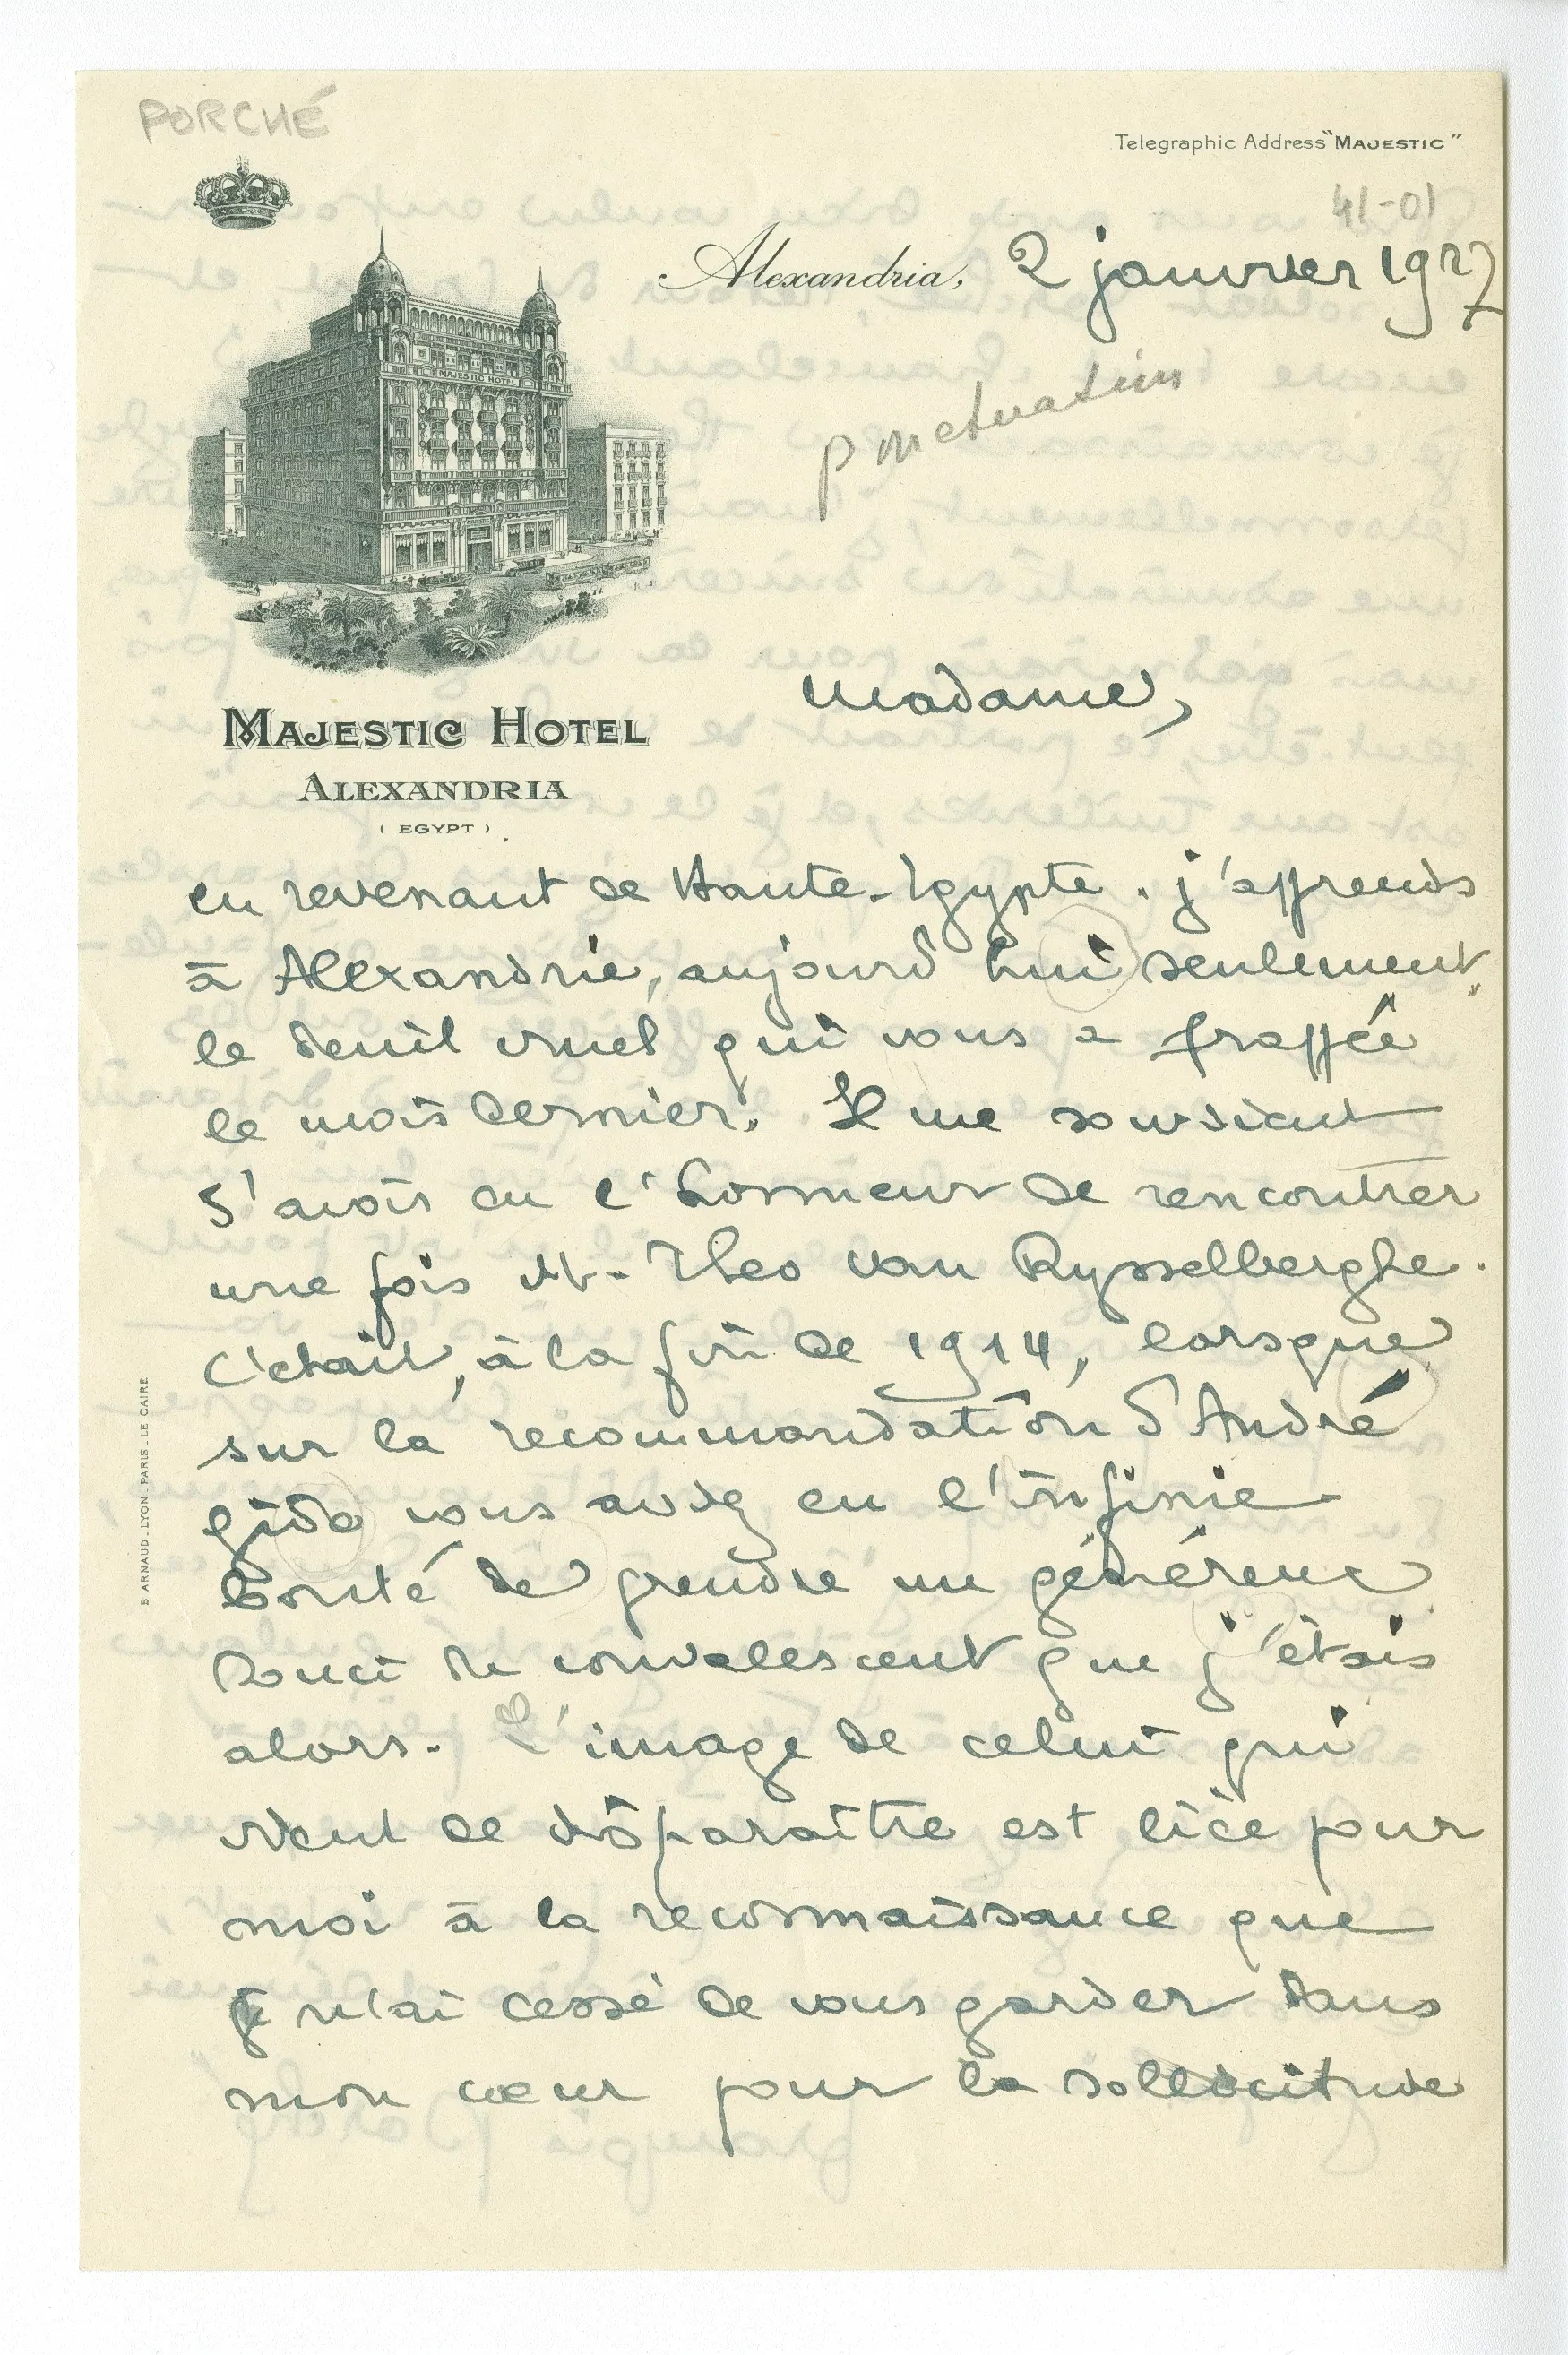 PORCHÉ
Telegraphic Address "MAJESTIC"
41-01
Alexandria, 2 janvier 1927
ponctuation
MAJESTIC HOTEL
ALEXANDRIA
(EGYPT).
Madame,
en revenant de Haute-Egypte. j'apprends
à Alexandrie, aujourd'hui seulement,
le deuil cruel qui vous a frappée
le mois dernier. Il me souvient
d'avoir eu l'honneur de rencontrer
une fois M. Theo van Rysselberghe.
C'était, à la fin de 1914, lorsque
sur la recommandation d'André
gide vous aviez eu l'infinie
bonté de prendre un généreux
souci du convalescent que j'étais
alors. L'image de celui qui
vient de disparaître est liée pour
moi à la reconnaissance que
je n'ai cessé de vous garder dans
mon cœur pour la sollicitude
B ARNAUD. LYON. PARIS. LE CAIRE